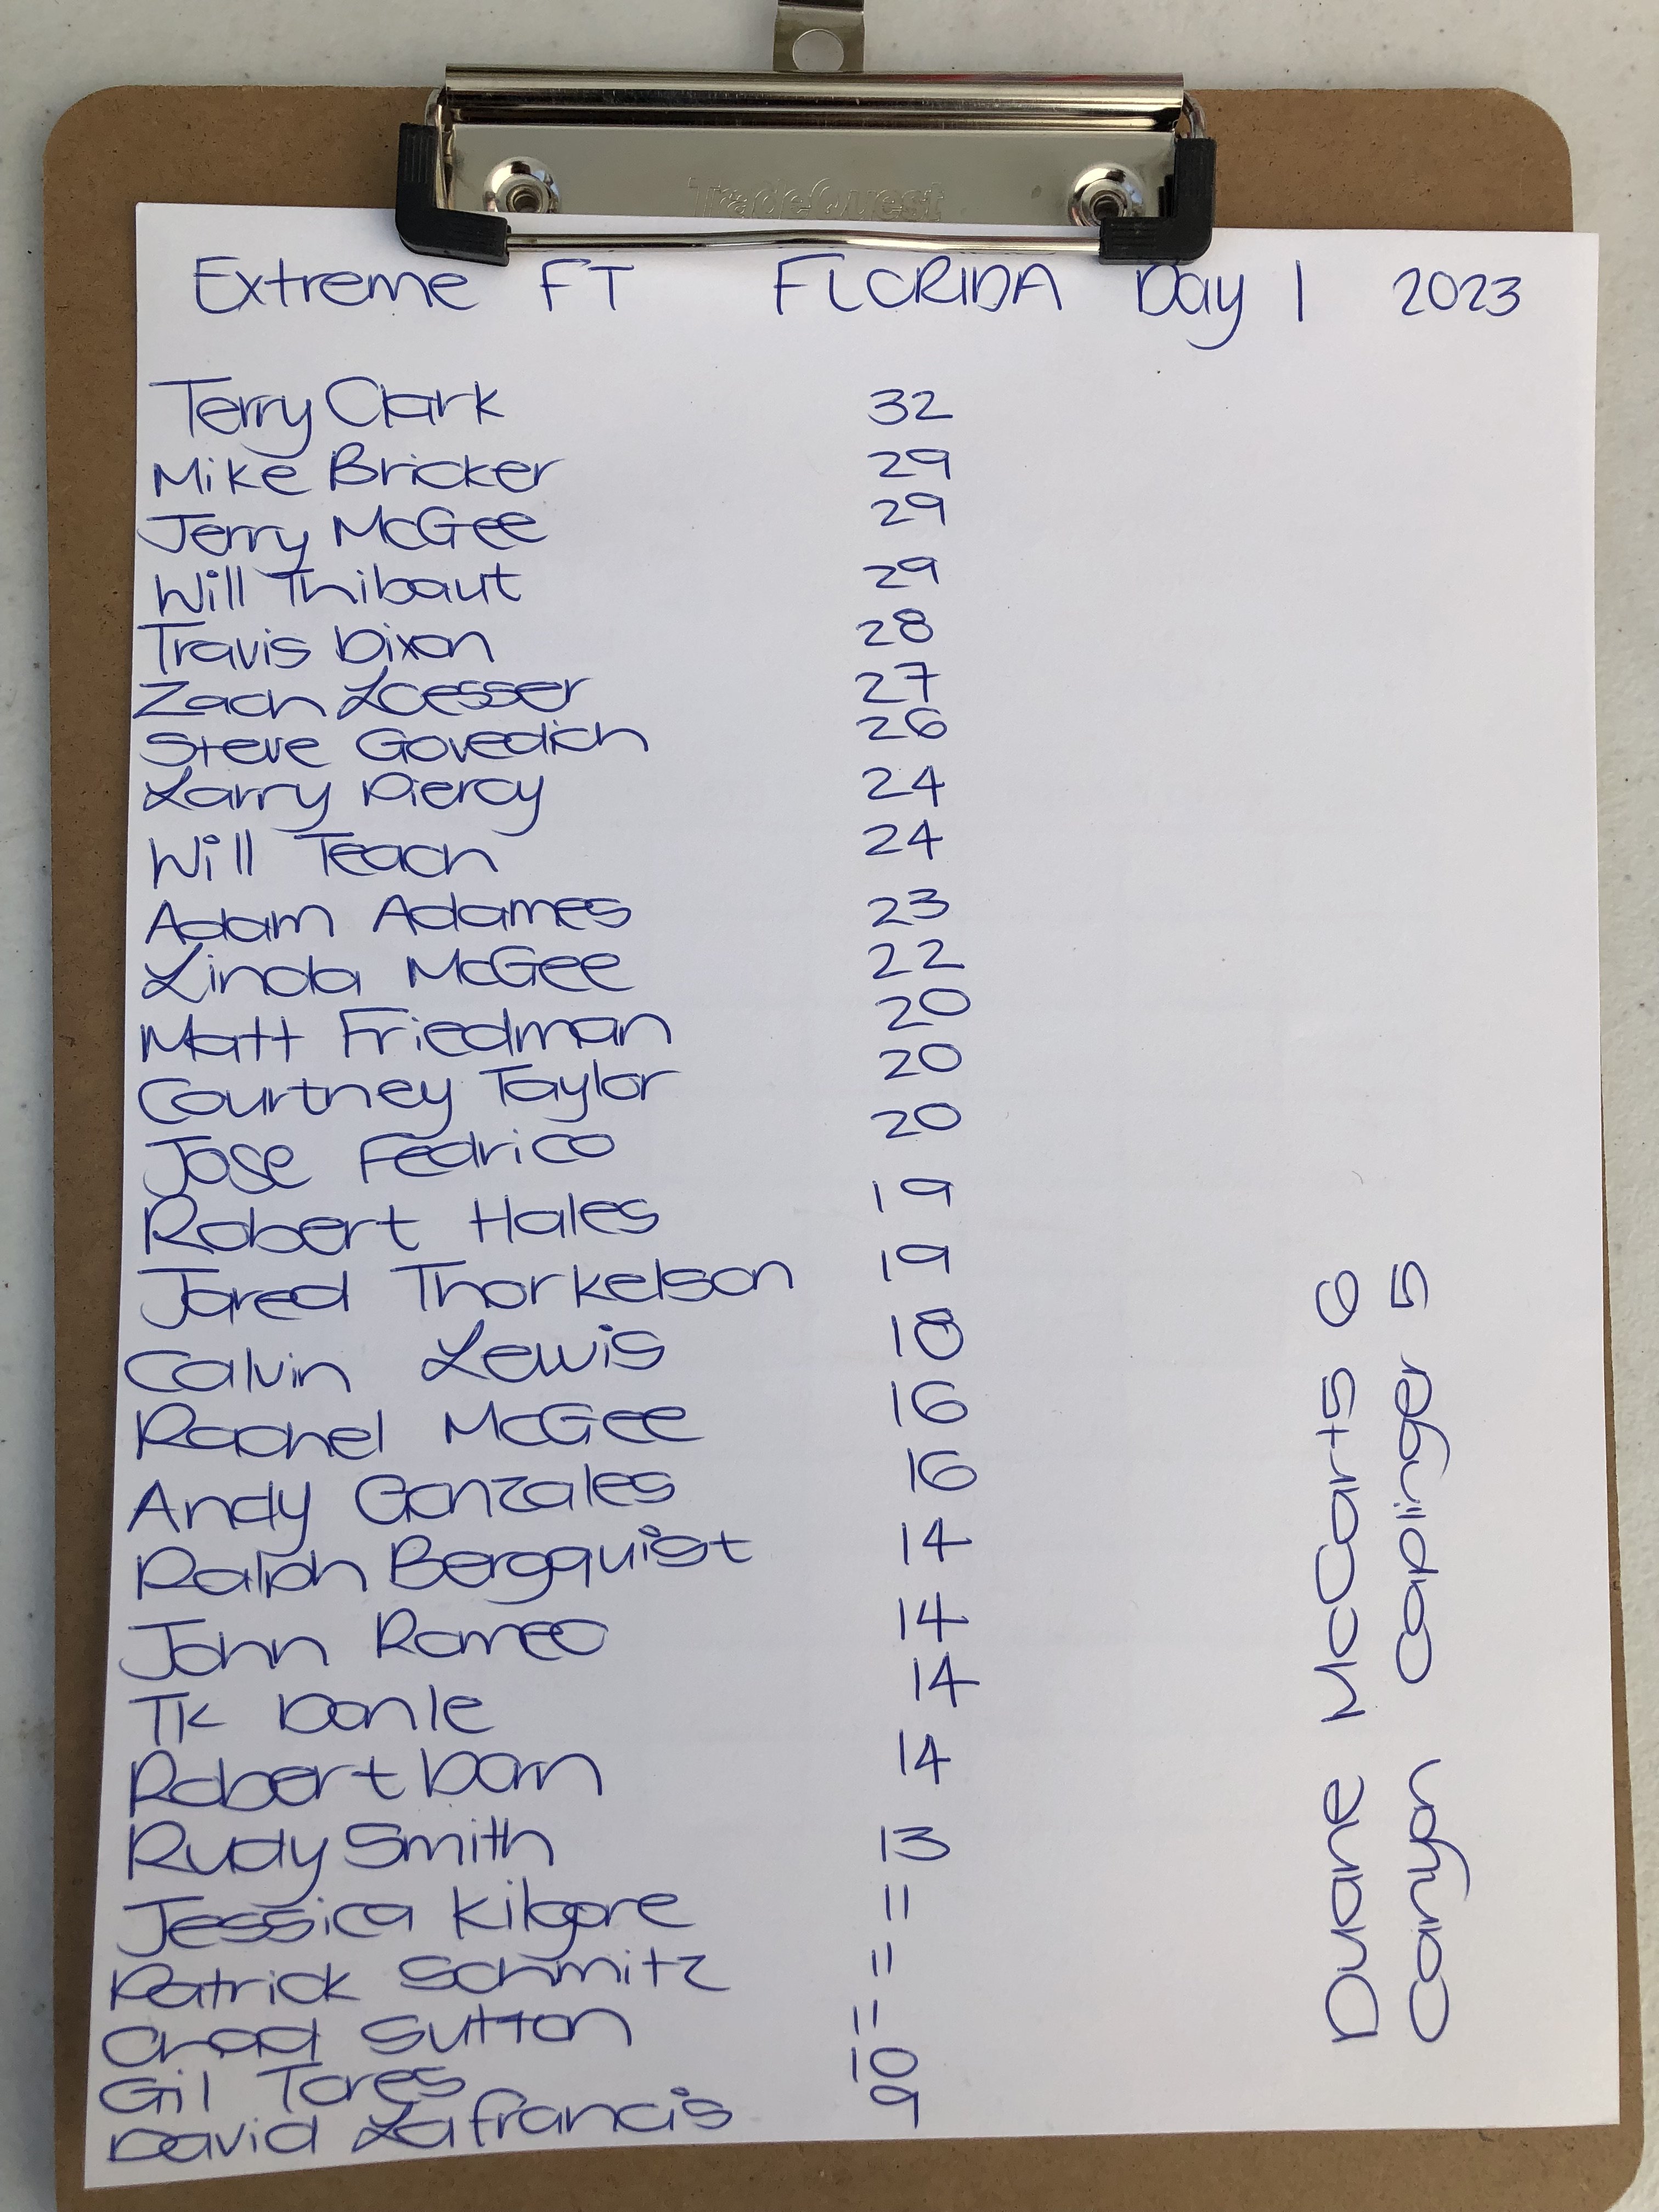 TradeQuest
Extreme FT FLORIDA Day 1 2023
Terry Clark 32
Mike Bricker 29
Jerry McGee 29
Will Thibaut 29
Travis Dixon 28
Zach Loesser 27
Steve Govedich 26
Larry Piercy 24
Will Teach 24
Adam Adames 23
Linda McGee 22
Matt Friedman 20
Courtney Taylor 20
Jose Fedrico 20
Robert Hales 19
Jared Thorkelson 19
Calvin Lewis 18
Rachel McGee 16
Andy Gonzales 16
Ralph Bergquist 14
John Romeo 14
TK Danle 14
Robert Dorn 14
Rudy Smith 13
Jessica Kilgore 11
Patrick Schmitz 11
Chad Sutton 11
Gil Tores 10
David Lafrancis 9
Duane McCart5 6
Canyon Caplinger 5